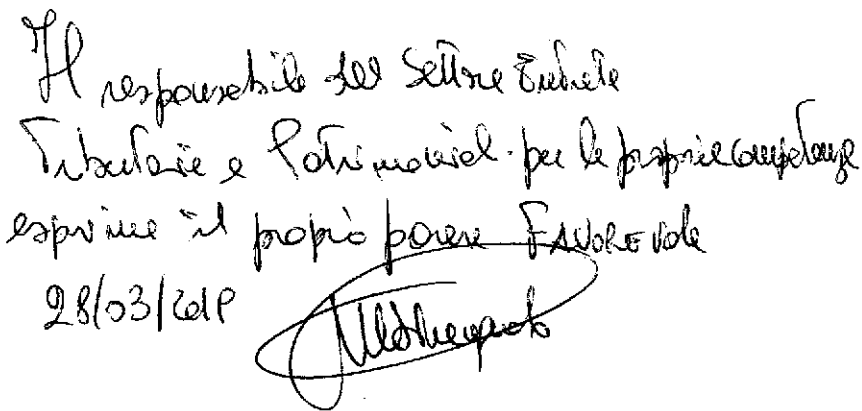 Il responsabile del Settore Entrate
Tributarie e Patrimoniali per le proprie competenze
esprime il proprio parere FAVOREVOLE
28/03/2018